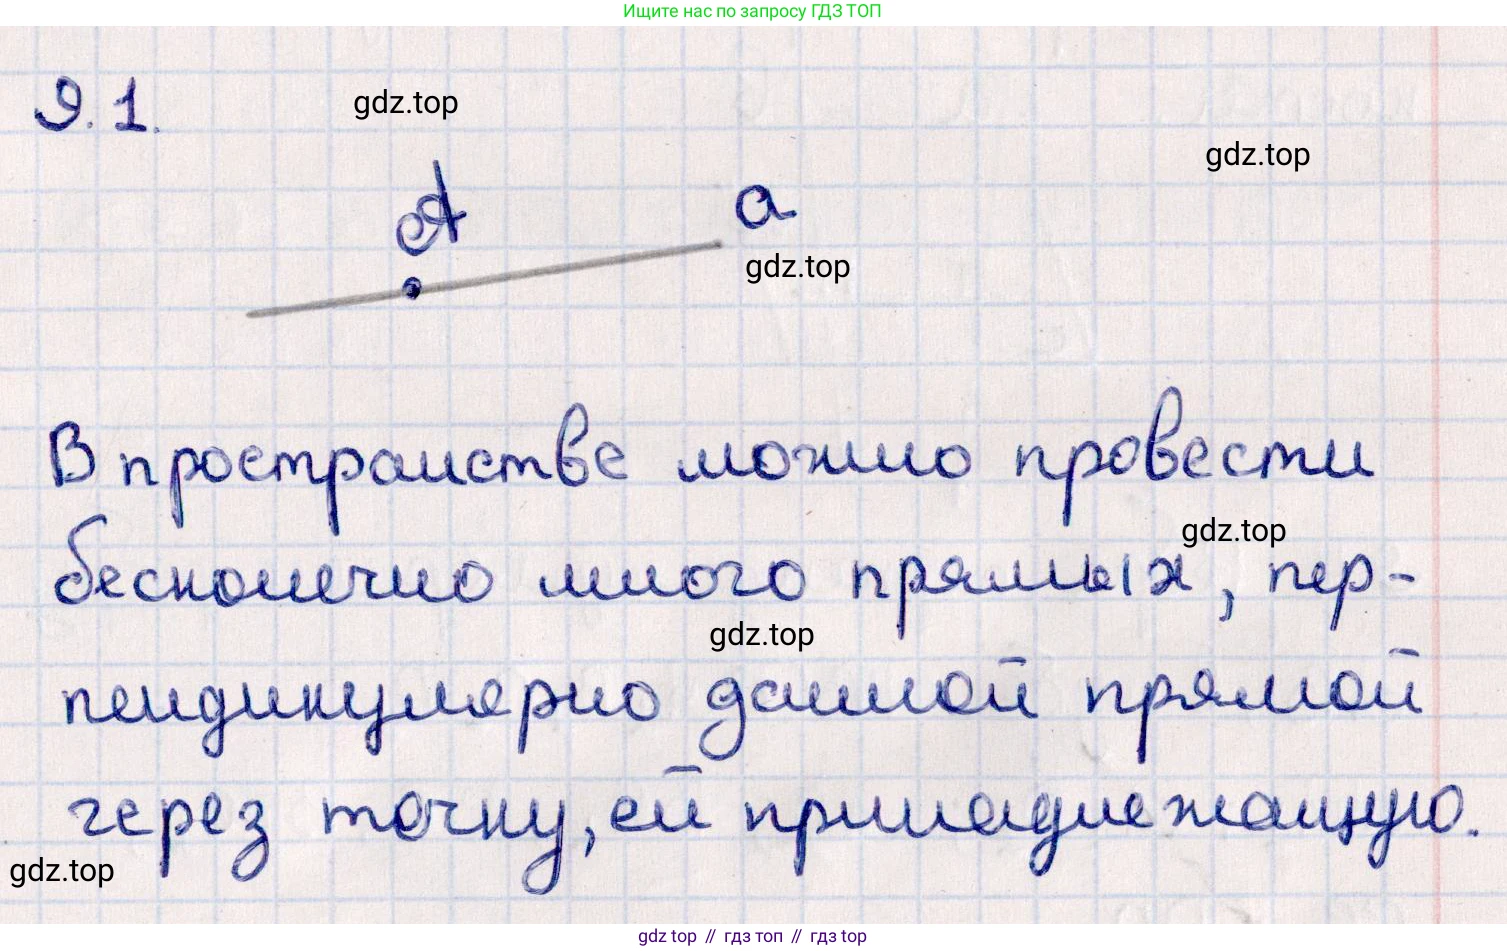 Ищите нас по запросу ГДЗ ТОП
9.1.
gdz.top
gdz.top
A
a
gdz.top
В пространстве можно провести
gdz.top
бесконечно много прямых, пер-
gdz.top
пендикулярно данной прямой
через точку, ей принадлежащую.
gdz.top
gdz top // гдз топ // гдз top